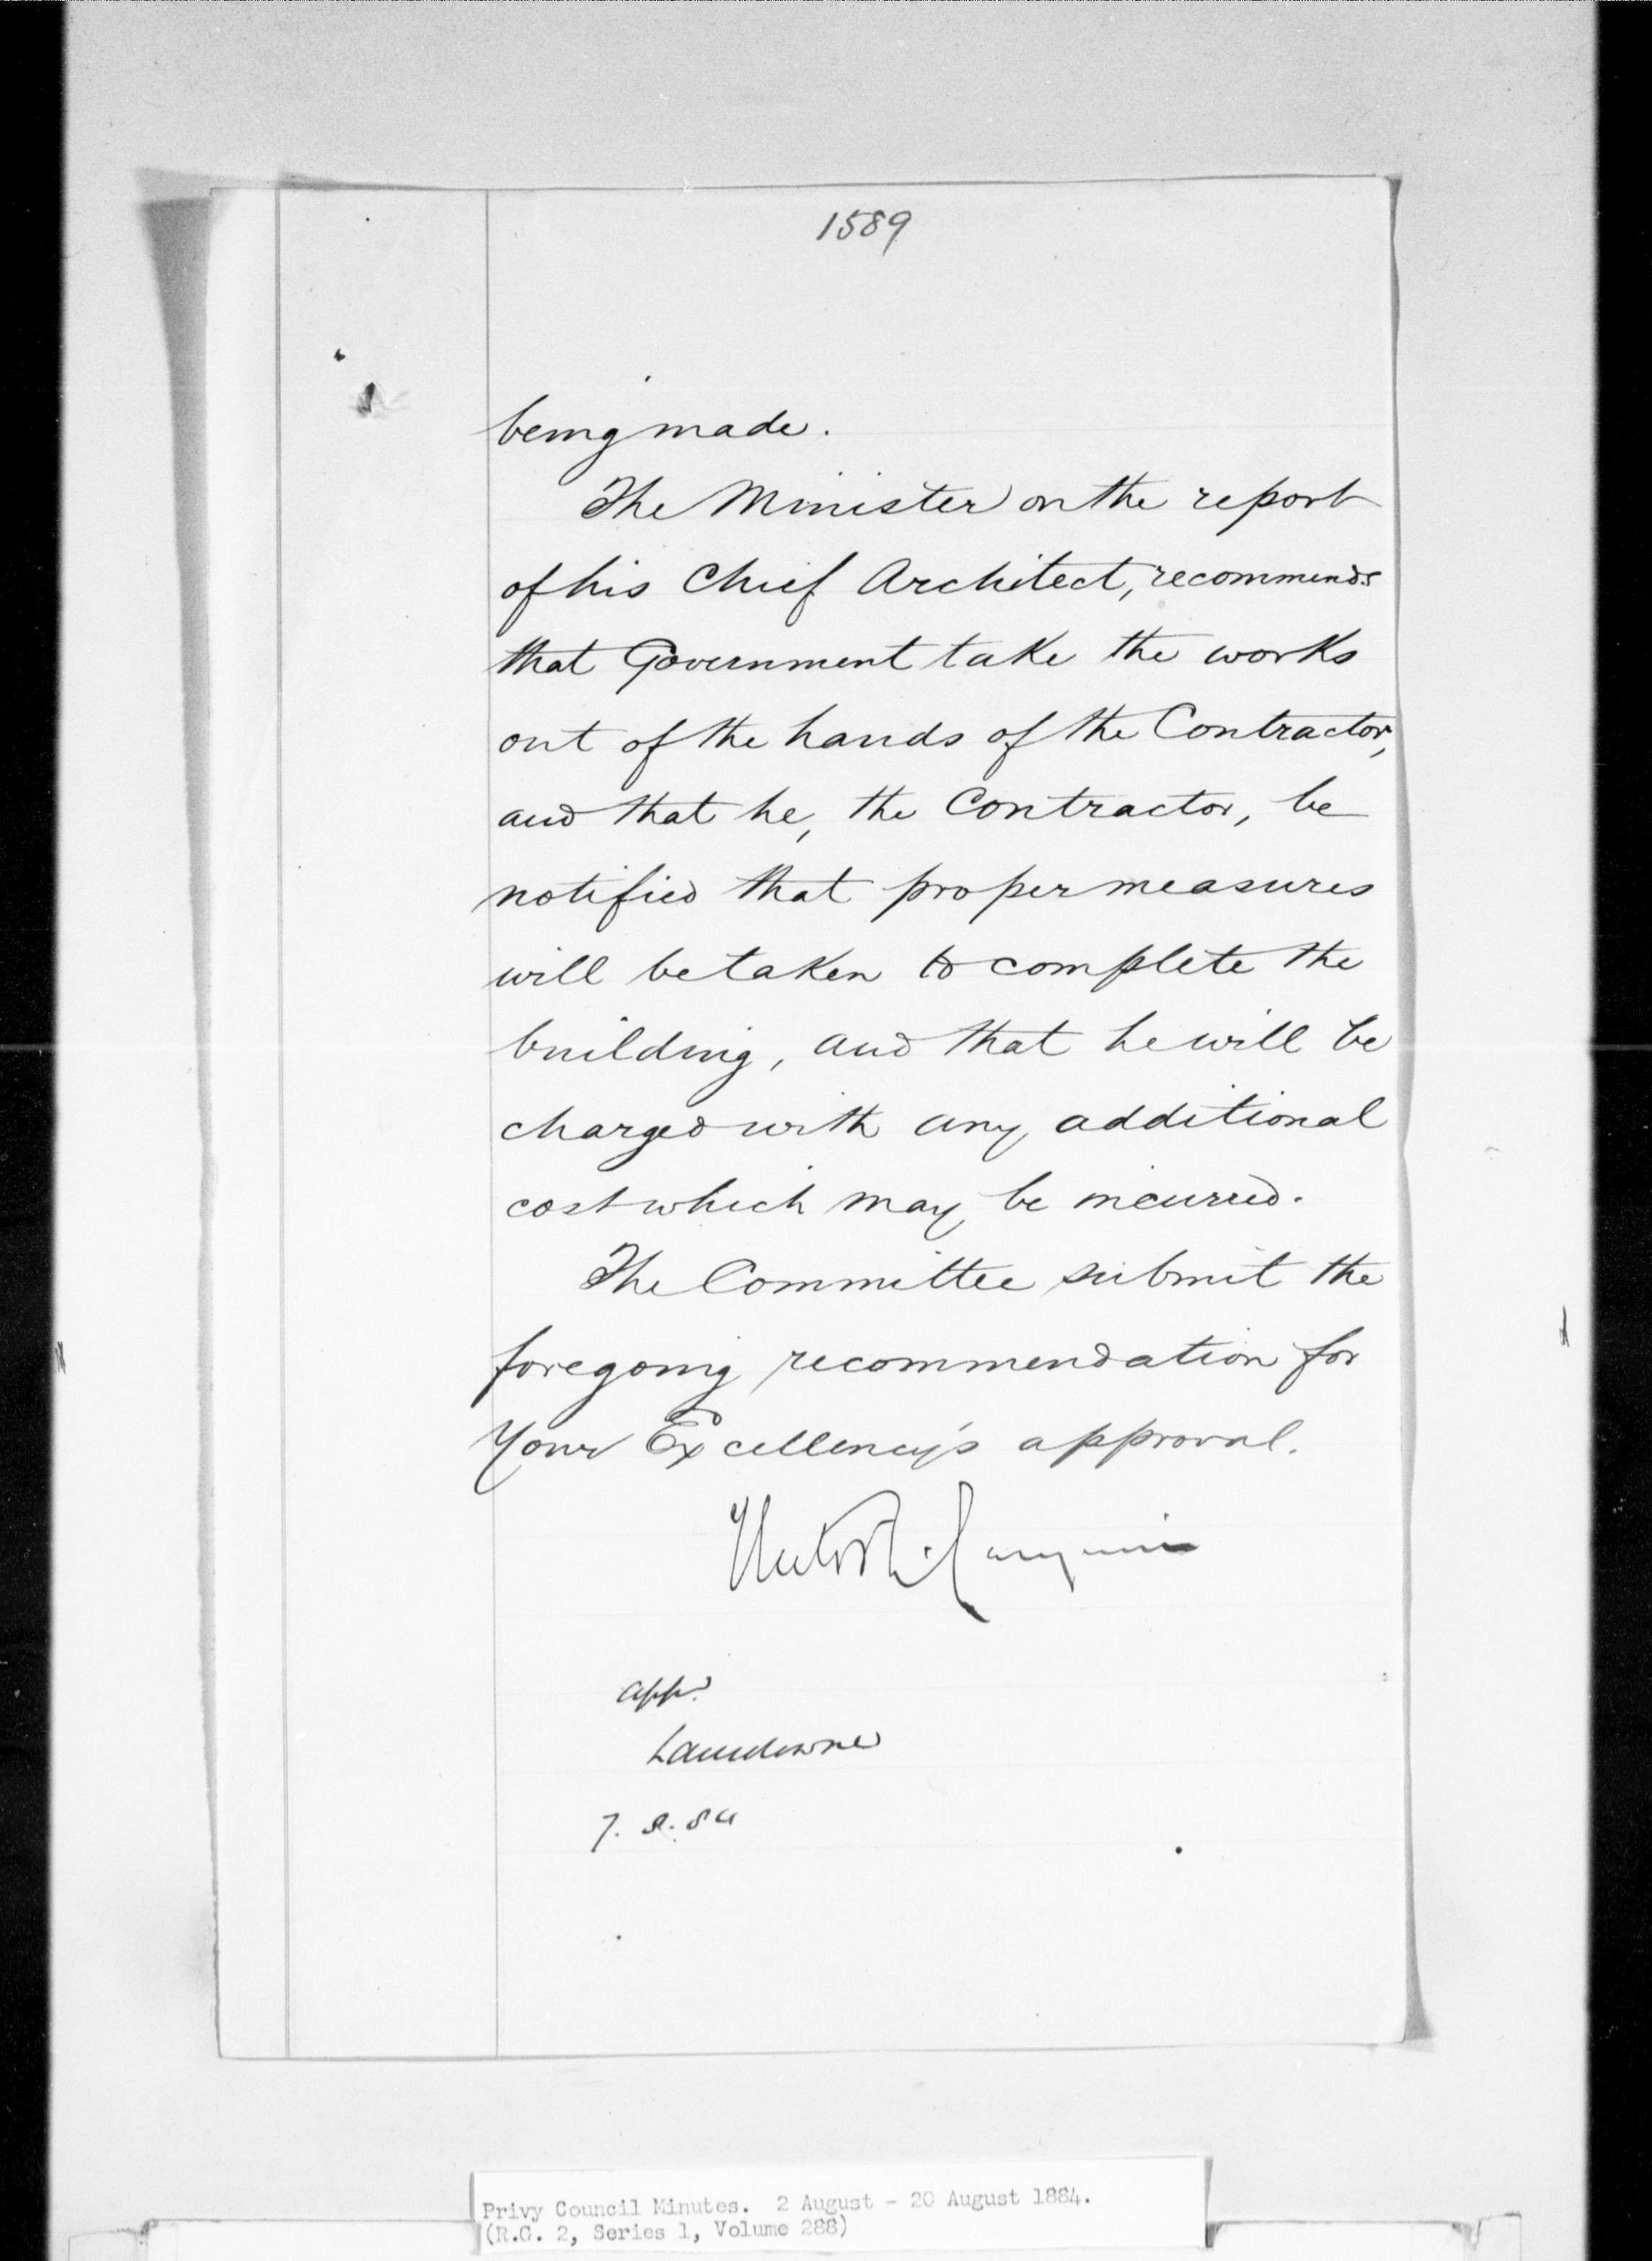 1589
being made.
The Minister on the report
of his Chief Architect, recommends
that Government take the works
out of the hands of the Contractor,
and that he, the Contractor, be
notified that proper measures
will be taken to complete the
building, and that he will be
charged with any additional
cost which may be incurred.
The Committee submit the
foregoing recommendation for
Your Excellency's approval.
Hector L. Langevin
appd
Lansdowne
7. 8. 84
Privy Council Minutes. 2 August - 20 August 1884.
(R.G. 2, Series 1, Volume 288)